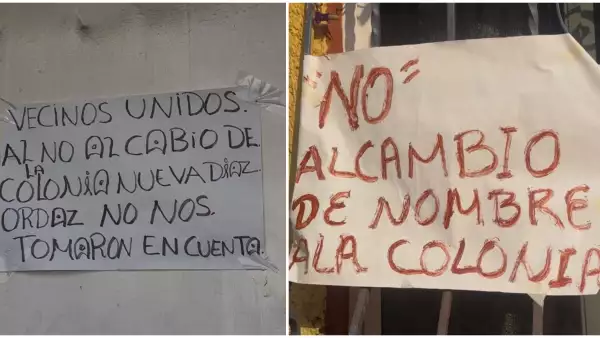 VECINOS UNIDOS.
AL NO AL CABIO DE
LA
COLONIA NUEVA DÍAZ
ORDAZ NO NOS.
TOMARON EN CUENTA.
"NO"
AL CAMBIO
DE NOMBRE
A LA COLONIA